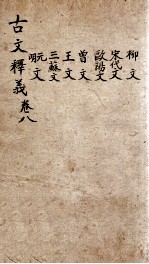 柳文
宋代文
歐陽文
曽文
王文
三蘇文
明文
古文釋義卷八